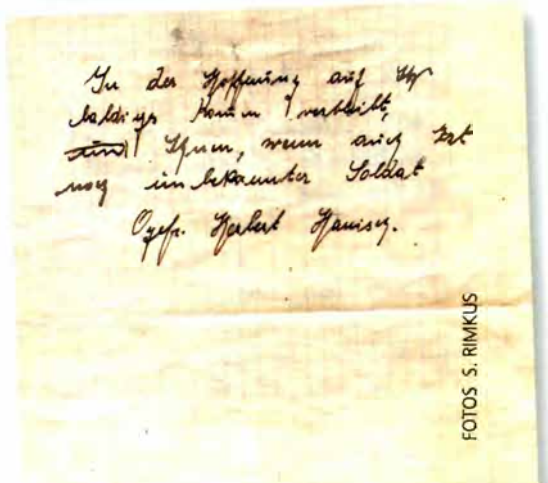 In der Hoffnung auf Ihr
baldiges Komm verbleibt,
Ihnen, wenn auch
noch unbekannter Soldat
Ogefr. Herbert Hanisch.
FOTOS S. RIMKUS